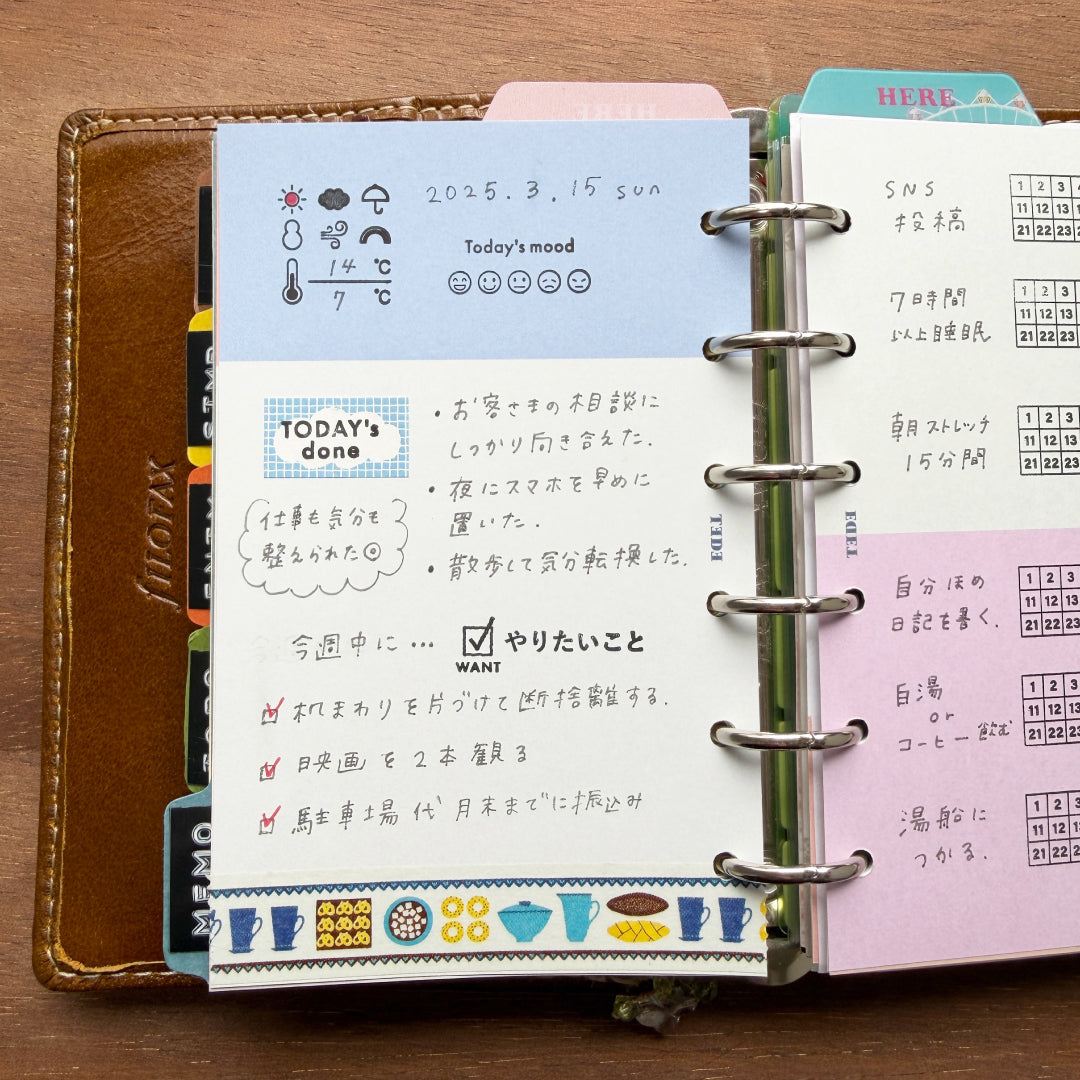 HERE
2025.3.15 sun
14 ℃
7 ℃
Today's mood
TODAY's
done
・お客さまの相談に
しっかり向き合えた.
・夜にスマホを早めに
置いた.
・散歩して気分転換した.
仕事も気分も
整えられた◎
今週中に…
WANT
やりたいこと
机まわりを片づけて断捨離する.
映画を2本観る
駐車場代 月末までに振込み
filofax
MEMO
SNS
投稿
1 2 3 4
11 12 13
21 22 23
7時間
以上睡眠
1 2 3
11 12 13
21 22 23
朝ストレッチ
15分間
1 2 3
11 12 13
21 22 23
自分ほめ
日記を書く.
1 2 3
11 12 13
21 22 23
白湯
or
コーヒー飲む
1 2 3
11 12 13
21 22 23
湯船に
つかる.
1 2 3
11 12 13
21 22 2